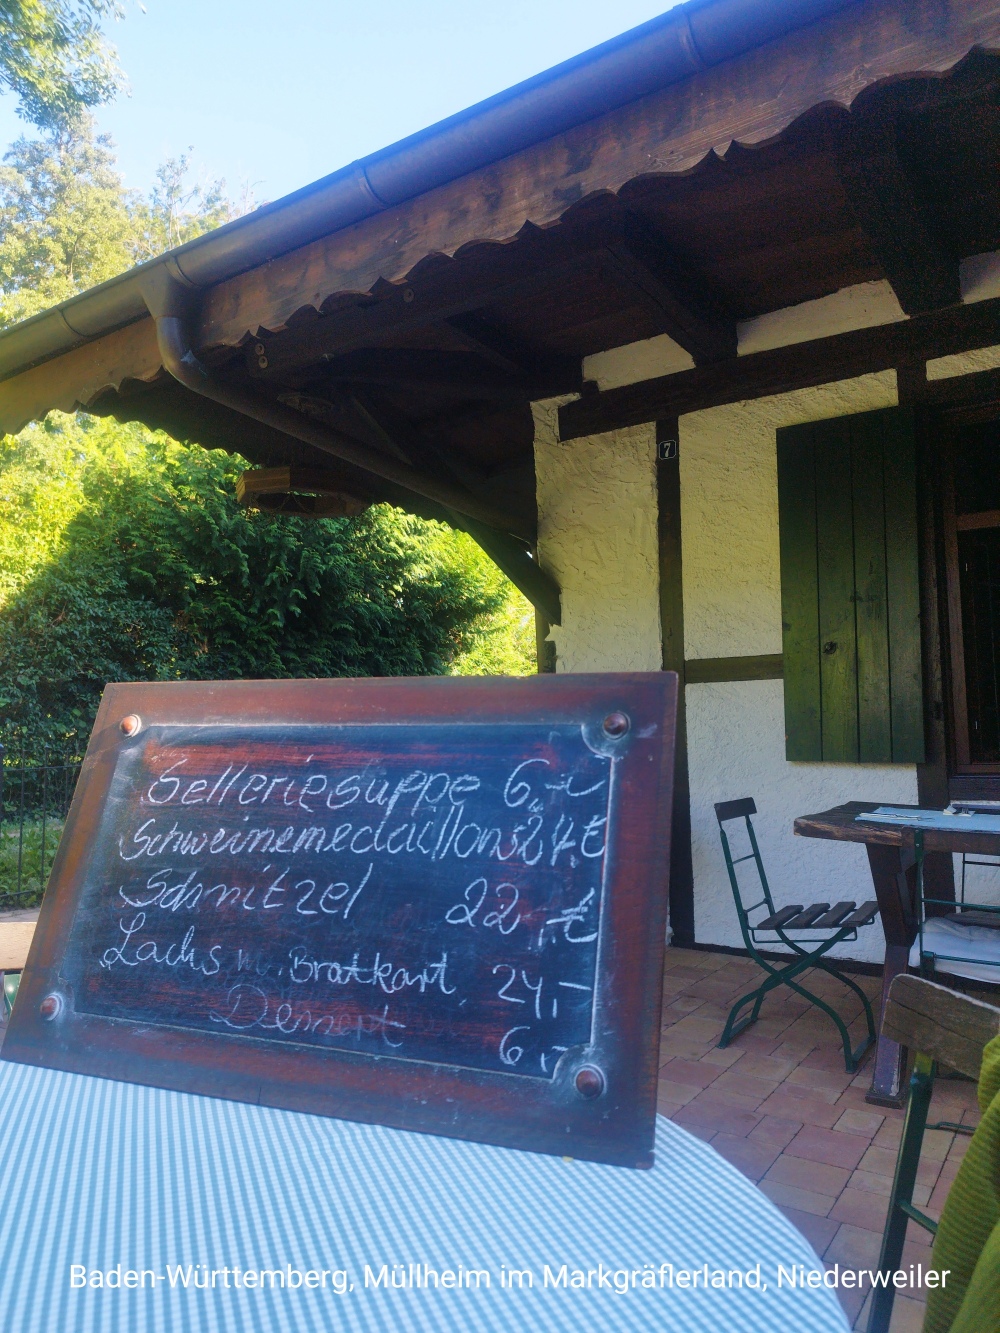 7
Selleriesuppe 6,-€
Schweinemedaillons 24,€
Schnitzel 22,-€
Lachs m. Bratkart. 24,-
Dessert 6,-
Baden-Württemberg, Müllheim im Markgräflerland, Niederweiler